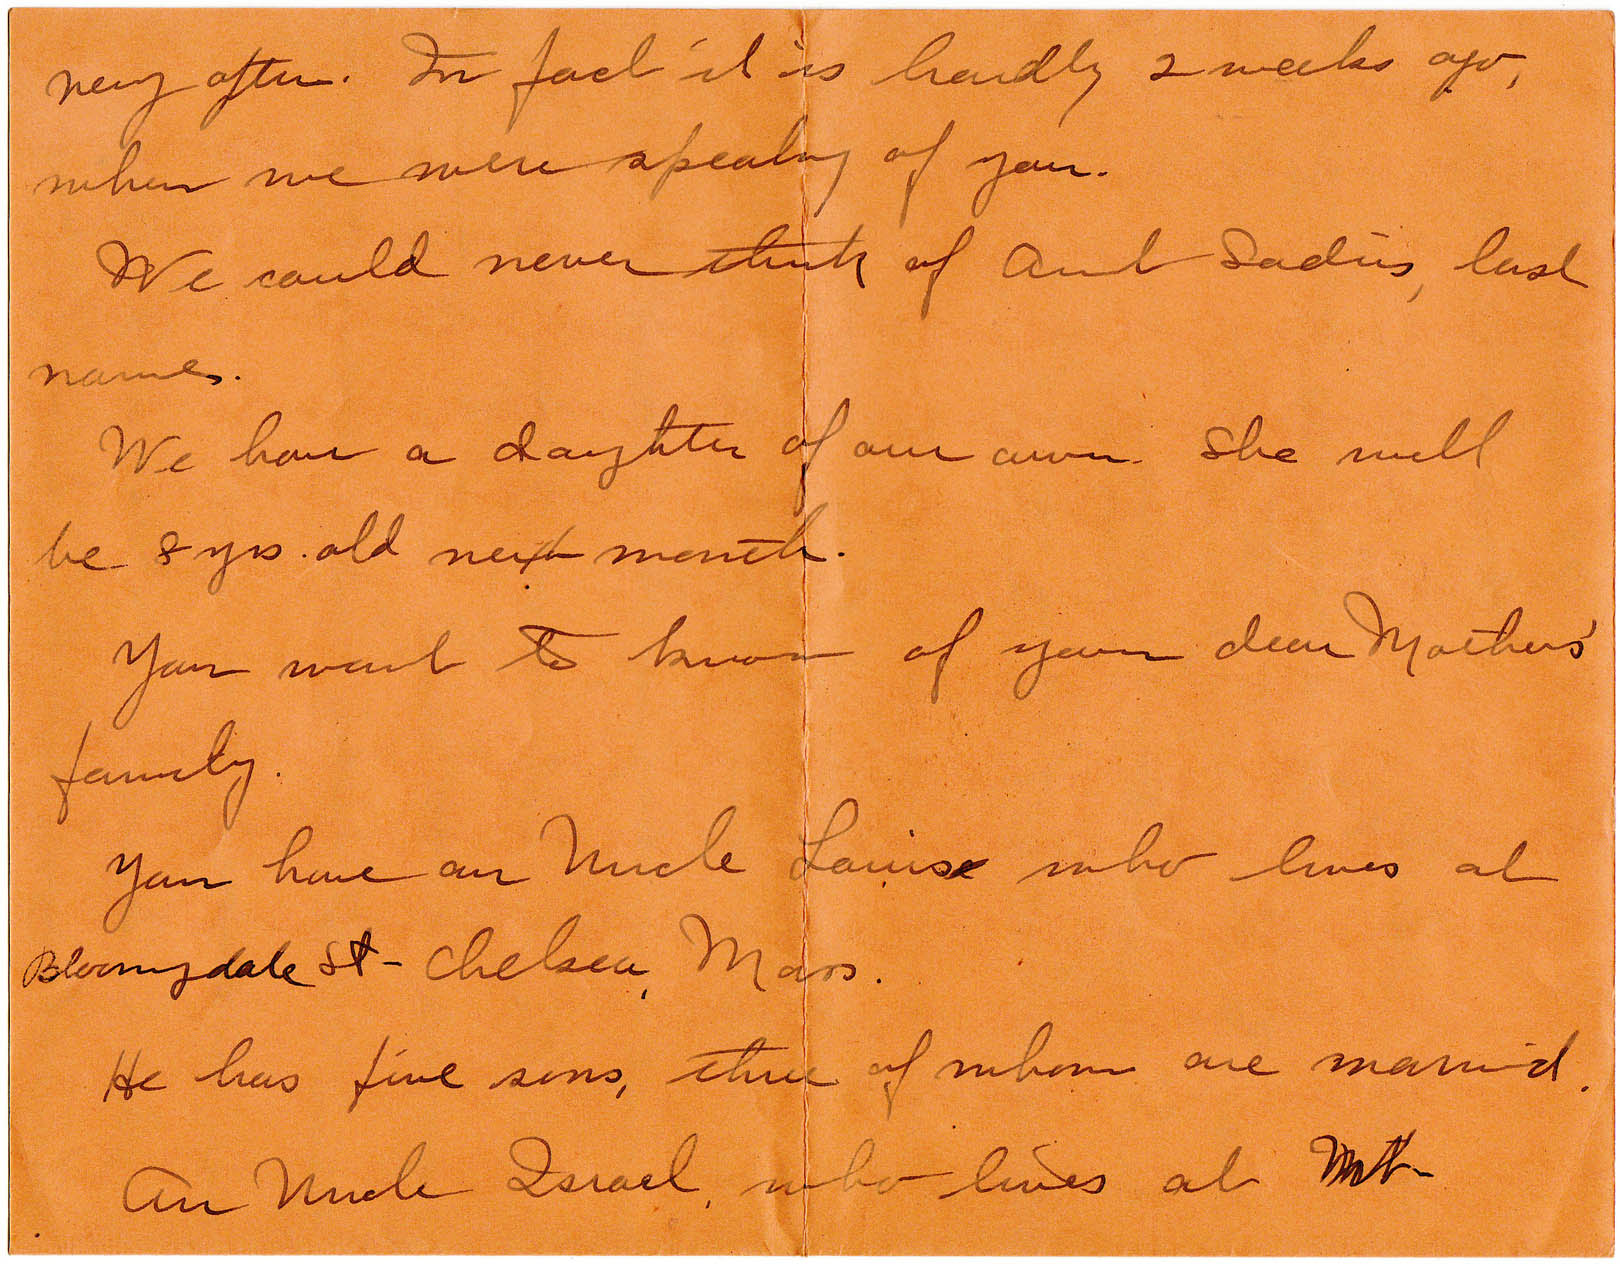 very often. In fact it is hardly 2 weeks ago,
when we were speaking of you.
We could never think of Aunt Sadies, last
names.
We have a daughter of our own. She will
be 8 yrs. old next month.
You want to know of your dear Mothers'
family.
You have an Uncle Louise who lives at
Bloomgdale St - Chelsea, Mass.
He has five sons, three of whom are married.
An Uncle Israel, who lives at